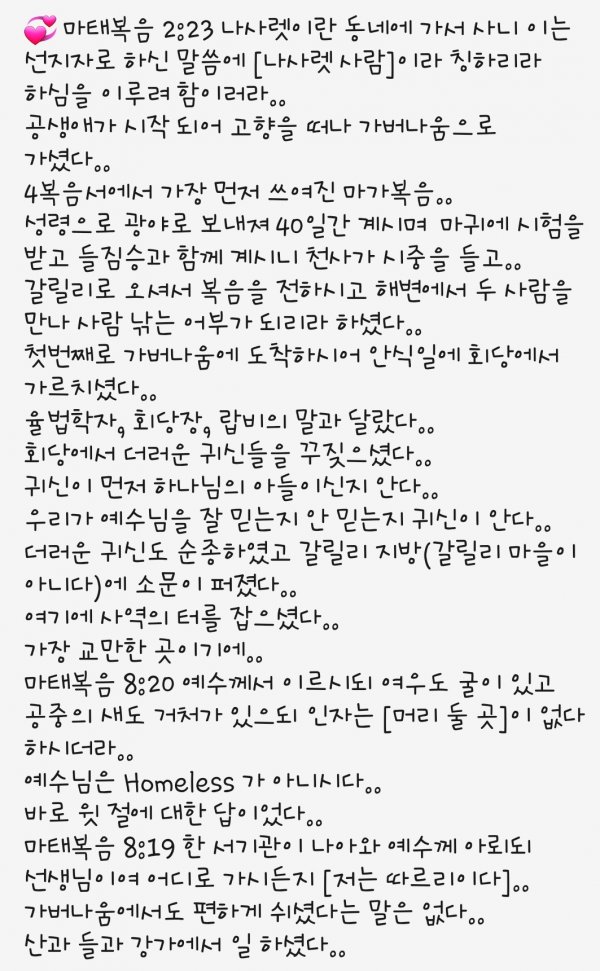 💞 마태복음 2:23 나사렛이란 동네에 가서 사니 이는
선지자로 하신 말씀에 [나사렛 사람]이라 칭하리라
하심을 이루려 함이러라。。
공생애가 시작 되어 고향을 떠나 가버나움으로
가셨다。。
4복음서에서 가장 먼저 쓰여진 마가복음。。
성령으로 광야로 보내져 40일간 계시며 마귀에 시험을
받고 들짐승과 함께 계시니 천사가 시중을 들고。。
갈릴리로 오셔서 복음을 전하시고 해변에서 두 사람을
만나 사람 낚는 어부가 되리라 하셨다。。
첫번째로 가버나움에 도착하시어 안식일에 회당에서
가르치셨다。。
율법학자, 회당장, 랍비의 말과 달랐다。。
회당에서 더러운 귀신들을 꾸짖으셨다。。
귀신이 먼저 하나님의 아들이신지 안다。。
우리가 예수님을 잘 믿는지 안 믿는지 귀신이 안다。。
더러운 귀신도 순종하였고 갈릴리 지방(갈릴리 마을이
아니다)에 소문이 퍼졌다。。
여기에 사역의 터를 잡으셨다。。
가장 교만한 곳이기에。。
마태복음 8:20 예수께서 이르시되 여우도 굴이 있고
공중의 새도 거처가 있으되 인자는 [머리 둘 곳]이 없다
하시더라。。
예수님은 Homeless 가 아니시다。。
바로 윗 절에 대한 답이었다。。
마태복음 8:19 한 서기관이 나아와 예수께 아뢰되
선생님이여 어디로 가시든지 [저는 따르리이다]。。
가버나움에서도 편하게 쉬셨다는 말은 없다。。
산과 들과 강가에서 일 하셨다。。